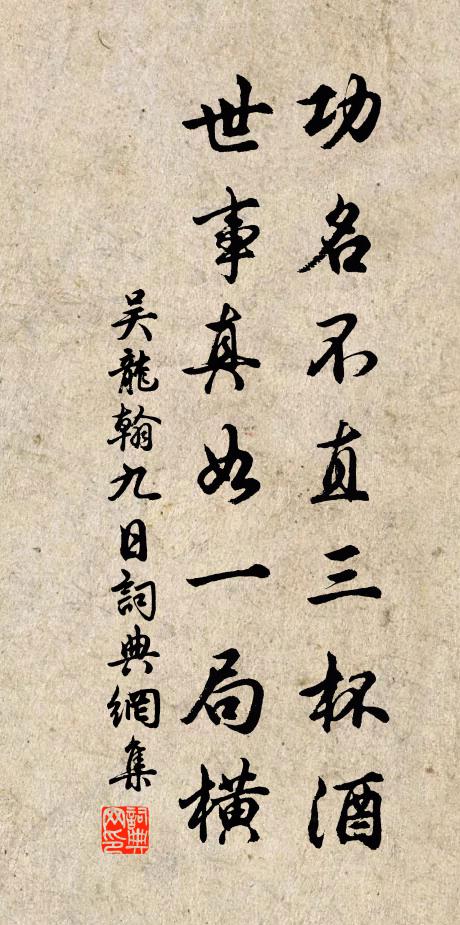 功名不直三杯酒
世事真如一局橫
吴龍翰九日詞典網集
詞典網印